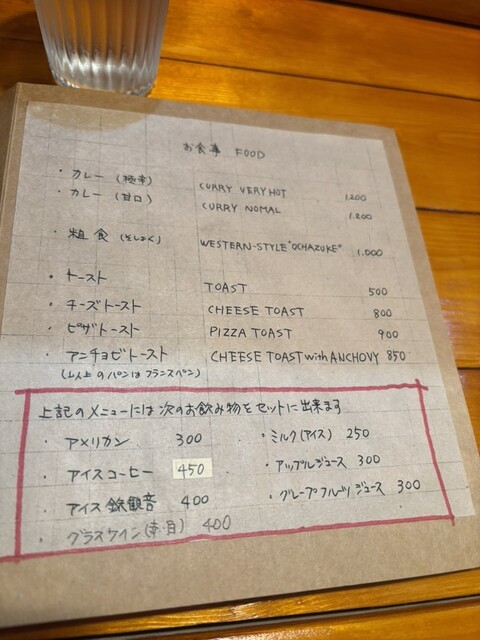 お食事 FOOD
・カレー (極辛) CURRY VERY HOT 1200
・カレー (甘口) CURRY NOMAL 1.200
・粗食 (そしょく) WESTERN-STYLE "OCHAZUKE" 1.000
・トースト TOAST 500
・チーズトースト CHEESE TOAST 800
・ピザトースト PIZZA TOAST 900
・アンチョビトースト CHEESE TOAST with ANCHOVY 850
(以上のパンはフランスパン)
上記のメニューには次のお飲み物をセットに出来ます
・アメリカン 300 ・ミルク(アイス) 250
・アイスコーヒー 450 ・アップルジュース 300
・アイス鉄観音 400 ・グレープフルーツジュース 300
・グラスワイン(赤・白) 400